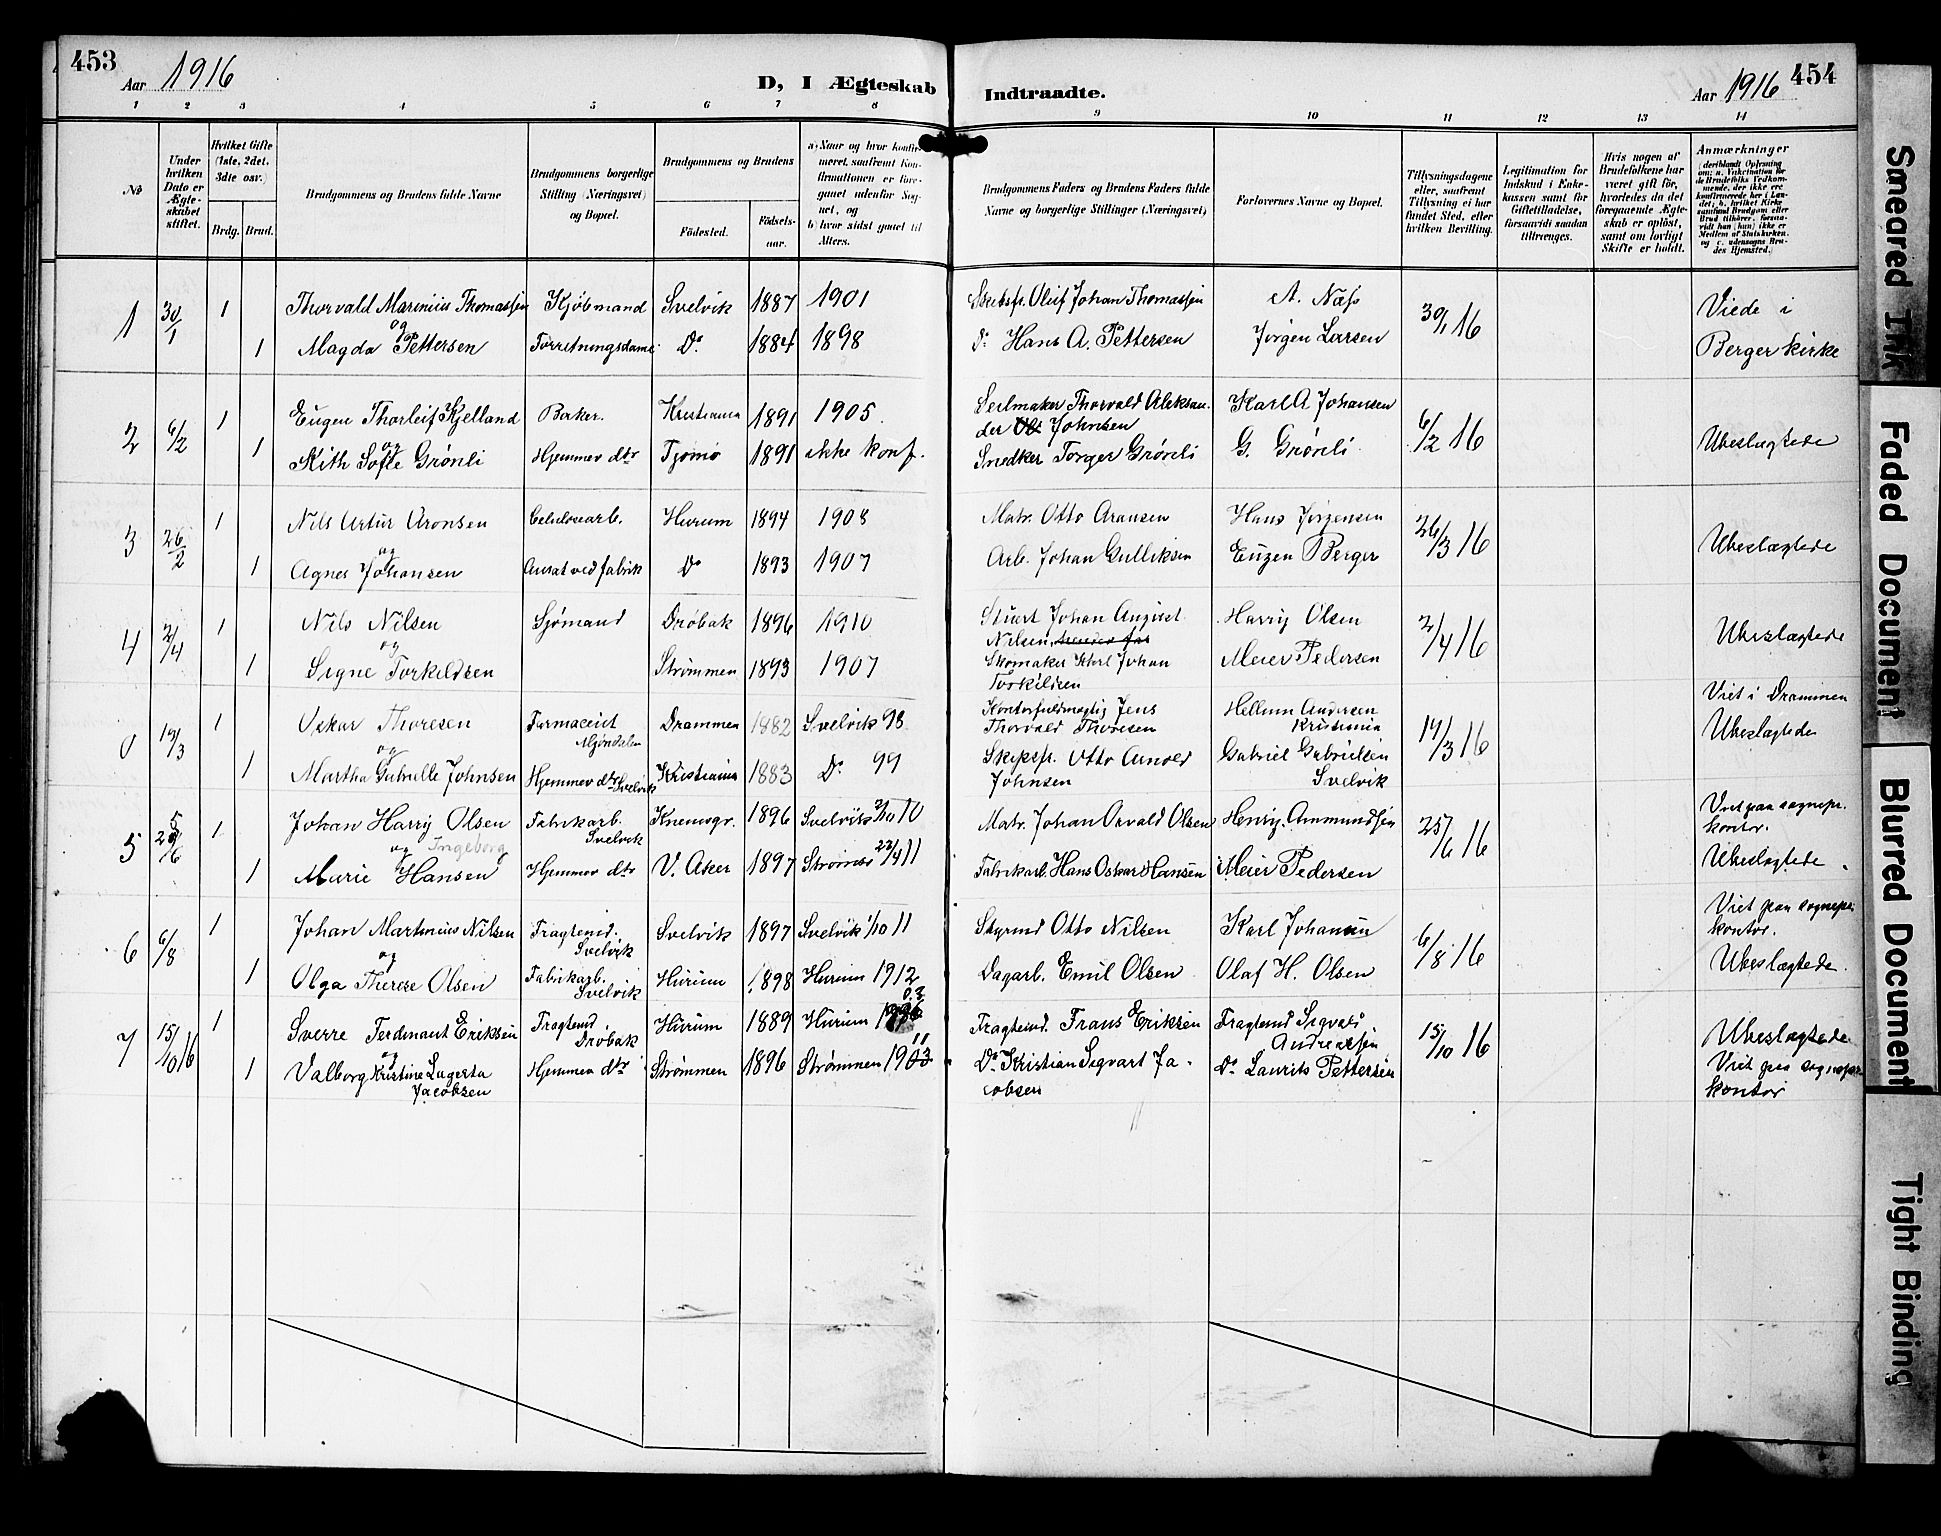 453
Aar 1916
D, I Ægteskab
Indtraadte.
Aar 1916
454
1 2 3 4 5 6 7 8 9 10 11 12 13 14
No
Under hvilken Dato er Ægteskabet stiftet.
Hvilket Gifte (1ste, 2det, 3die osv.)
Brdg. Brud.
Brudgommens og Brudens fulde Navne
Brudgommens borgerlige Stilling (Næringsvei) og Bopæl.
Brudgommens og Brudens
Fødested.
Fødsels-aar.
a) Naar og hvor konfirmeret, saafremt Konfirmationen er foregaaet udenfor Sognet, og
b) hvor sidst gaaet til Alters.
Brudgommens Faders og Brudens Faders fulde Navne og borgerlige Stillinger (Næringsvei)
Forlovernes Navne og Bopæl.
Tillysningsdagene eller, saafremt Tillysning ei har fundet Sted, efter hvilken Bevilling.
Legitimation for Indskud i Enkekassen samt for Giftetilladelse, forsaavidt saadan tiltrænges.
Hvis nogen af Brudefolkene har været gift før, hvorledes da det foregaaende Ægteskab er opløst, samt om lovligt Skifte er holdt.
Anmærkninger
1 30/1 1 Thorvald Marinius Thomassen Kjøbmand Svelvik 1887 1901 Skibsfr. Oluf Johan Thomassen A. Næss 30/1 16 Viede i
og
1 Magda Pettersen Forretningsdame Do 1884 1898 Do Hans A. Pettersen Jørgen Larsen Berger kirke
2 6/2 1 Eugen Thorleif Kjelland Baker. Kristiania 1891 1905 Seilmaker Thorvald Aleksan- Karl A Johansen 6/2 16 Ubeslagtede
og der Johnsen
1 Sofie Grønli Hjemmev dtr Tjømø 1891 ikke konf. Snedker Torger Grønli G. Grønli
3 26/2 1 Nils Artur Aronsen Celulosearb. Hurum 1894 1908 Matr. Otto Aronsen Hans Jørgensen 26/3 16 Ubeslægtede
og
1 Agnes Johansen Ansat ved fabrik Do 1893 1907 Arb. Johan Gulliksen Eugen Berger
4 2/4 1 Nils Nilsen Sjømand Drøbak 1896 1910 Stuert Johan August Harry Olsen 2/4 16 Ubeslægtede
og Nilsen
1 Signe Torkildsen Strømmen 1893 1907 Skomaker Karl Johan Meier Pedersen
Torkildsen
0 14/3 1 Oskar Thoresen Farmaceut Drammen 1882 Svelvik 98 Kontorfuldmægtig Jens Hellum Andersen 14/3 16 Viet i Drammen
og Mjøndalen Thorvald Thoresen Kristiania Ubeslagtede
1 Martha Gabrielle Johnsen Hjemmev dtr Svelvik Kristiania 1883 Do 99 Skipsfr. Otto Arnold Gabriel Gabrielsen
Johnsen Svelvik
5 25/6 1 Johan Harry Olsen Fabrikarb. 1896 Svelvik 2/10 10 Matr. Johan Osvald Olsen Henry. Ammundsen 25/6 16 Viet paa sognepr.
og Ingeborg Svelvik kontor.
1 Marie Hansen Hjemmev dtr V. Aker 1897 Strømsø 23/4 11 Fabrikarb. Hans Oskar Hansen Meier Pedersen Ubeslagtede
6 6/8 1 Johan Martinius Nilsen Fragtemd. Svelvik 1897 Svelvik 1/10 11 Styrmd Otto Nilsen Karl Johansen 6/8 16 Viet paa sognepr.
og Svelvik kontor.
1 Olga Therese Olsen Fabrikarb. Hurum 1898 Hurum 1912 Dagarb. Emil Olsen Olaf H. Olsen Ubeslægtede.
Svelvik
7 15/10 16 1 Sverre Ferdinant Eriksen Fragtemd Hurum 1889 Hurum 03 Fragtemd. Frans Eriksen Fragtemd Sigvart 15/10 16 Ubeslagtede
og Drøbak Andreassen
1 Valborg Kristine Lagerta Hjemmev dtr Strømmen 1896 Strømmen 1911 Do Kristian Sigvart Ja- Do Laurits Pettersen Viet paa sognepr
Jacobsen cobsen kontor
Smeared Ink
Faded Document
Blurred Document
Tight Binding